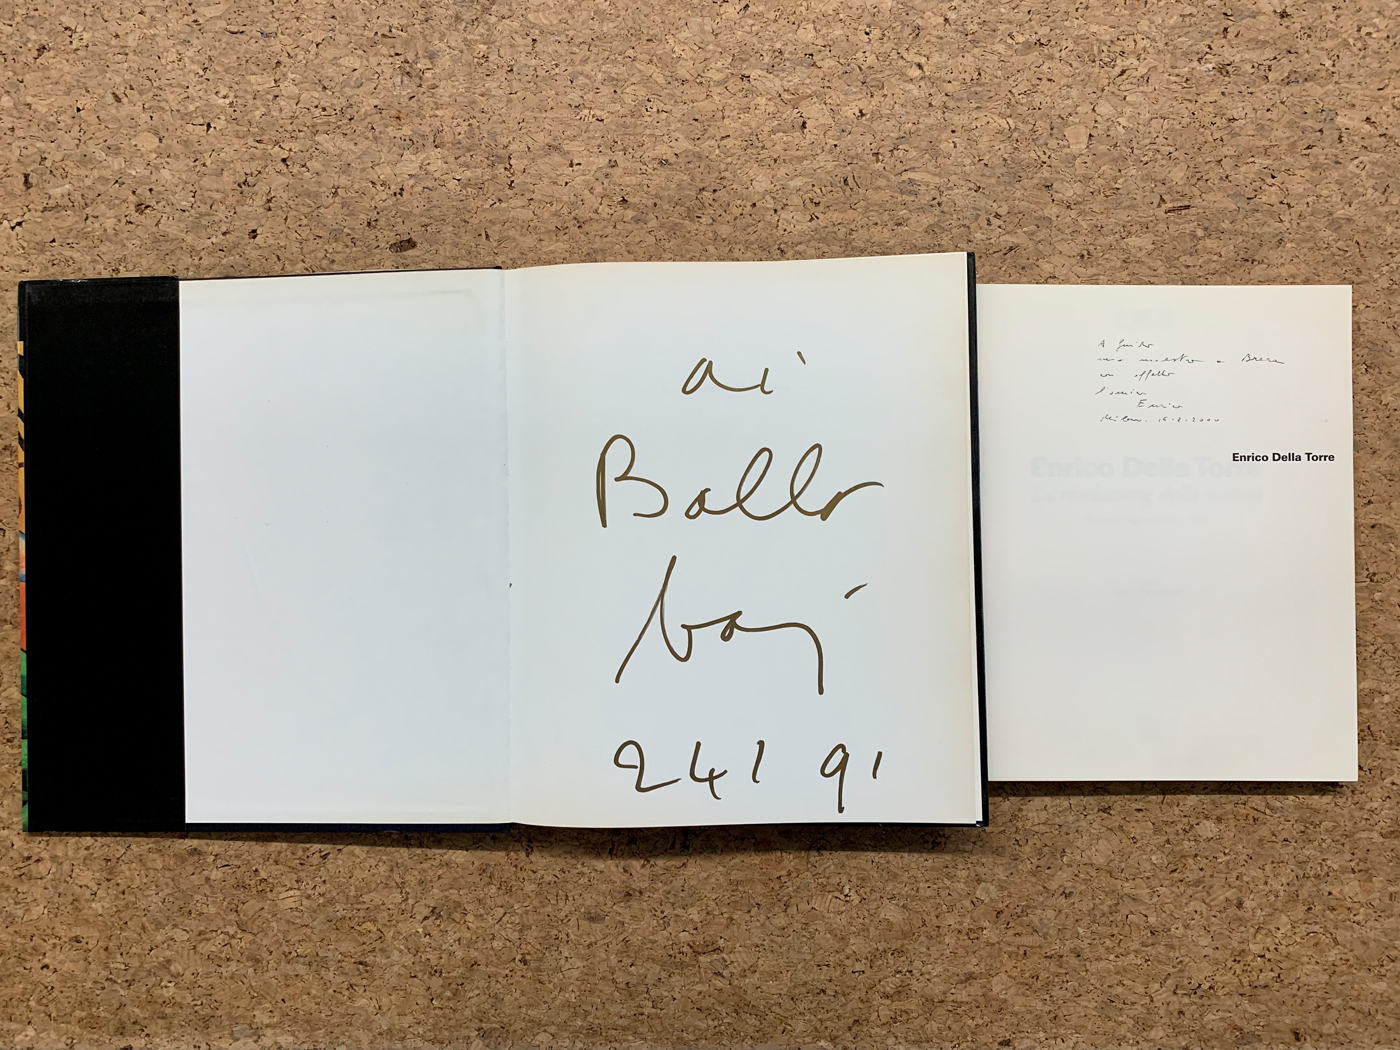 ai
Ballo
baj
24 1 91
A Guido
mio maestro a Brera
con affetto
l'amico
Enrico
Milano. 16.2.2000
Enrico Della Torre
Enrico Della Torre